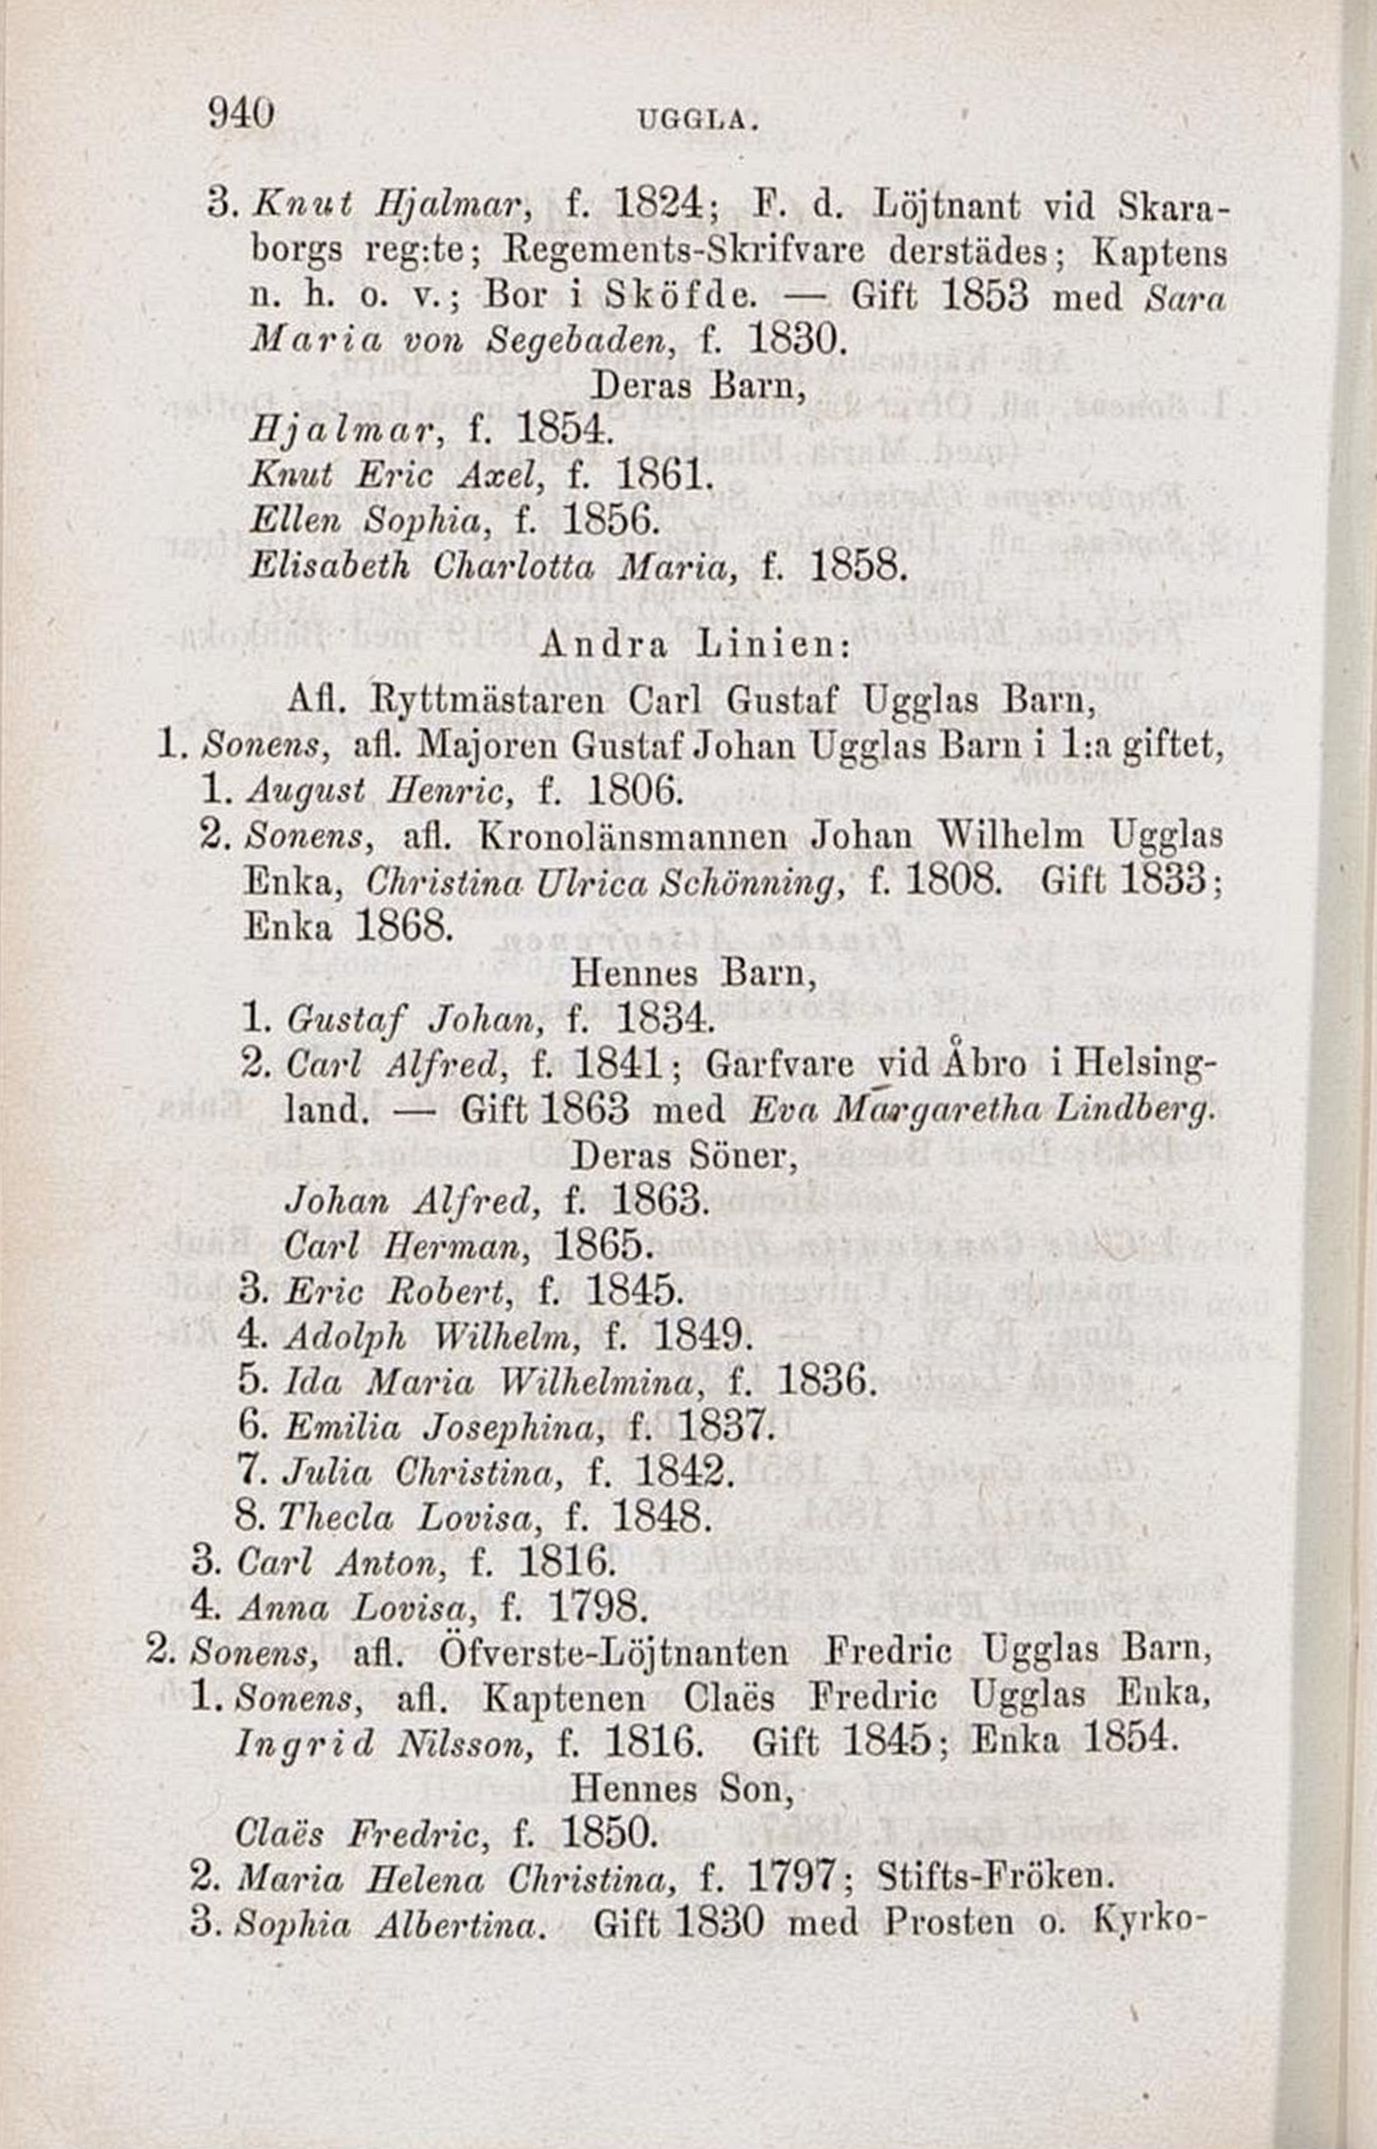 940 UGGLA.
3. Knut Hjalmar, f. 1824; F. d. Löjtnant vid Skara-
borgs reg:te; Regements-Skrifvare derstädes; Kaptens
n. h. o. v.; Bor i Sköfde. — Gift 1853 med Sara
Maria von Segebaden, f. 1830.
Deras Barn,
Hjalmar, f. 1854.
Knut Eric Axel, f. 1861.
Ellen Sophia, f. 1856.
Elisabeth Charlotta Maria, f. 1858.
Andra Linien:
Afl. Ryttmästaren Carl Gustaf Ugglas Barn,
1. Sonens, afl. Majoren Gustaf Johan Ugglas Barn i 1:a giftet,
1. August Henric, f. 1806.
2. Sonens, afl. Kronolänsmannen Johan Wilhelm Ugglas
Enka, Christina Ulrica Schönning, f. 1808. Gift 1833;
Enka 1868.
Hennes Barn,
1. Gustaf Johan, f. 1834.
2. Carl Alfred, f. 1841; Garfvare vid Åbro i Helsing-
land. — Gift 1863 med Eva Margaretha Lindberg.
Deras Söner,
Johan Alfred, f. 1863.
Carl Herman, 1865.
3. Eric Robert, f. 1845.
4. Adolph Wilhelm, f. 1849.
5. Ida Maria Wilhelmina, f. 1836.
6. Emilia Josephina, f. 1837.
7. Julia Christina, f. 1842.
8. Thecla Lovisa, f. 1848.
3. Carl Anton, f. 1816.
4. Anna Lovisa, f. 1798.
2. Sonens, afl. Öfverste-Löjtnanten Fredric Ugglas Barn,
1. Sonens, afl. Kaptenen Claës Fredric Ugglas Enka,
Ingrid Nilsson, f. 1816. Gift 1845; Enka 1854.
Hennes Son,
Claës Fredric, f. 1850.
2. Maria Helena Christina, f. 1797; Stifts-Fröken.
3. Sophia Albertina. Gift 1830 med Prosten o. Kyrko-